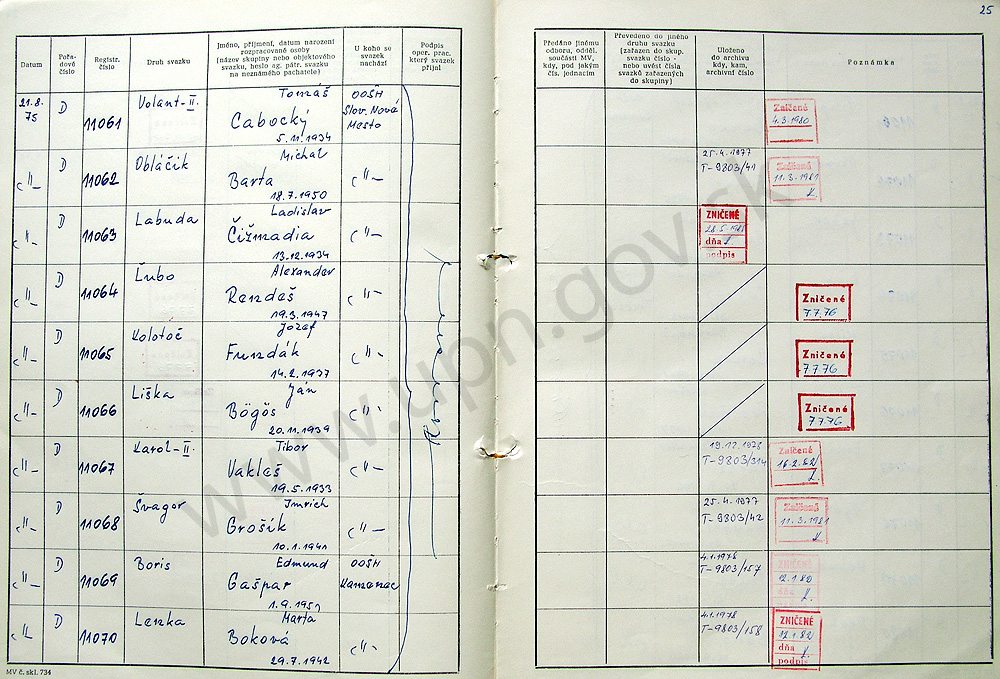 25
Datum
Pořadové číslo
Registr. číslo
Druh svazku
Jméno, příjmení, datum narození rozpracované osoby (název skupiny nebo objektového svazku, heslo ag. pátr. svazku na neznámého pachatele)
U koho se svazek nachází
Podpis oper. prac. který svazek přijal
Předáno jinému odboru, odděl. součásti MV, kdy, pod jakým čís. jednacím
Převedeno do jiného druhu svazku (zařazen do skup. svazku číslo - nebo uvést čísla svazků zařazených do skupiny)
Uloženo do archivu kdy, kam, archivní číslo
Poznámka
21.8. 75 D 11061 Volant-II. Tomáš Cabocký 5.11.1934 OOŠH Slov. Nová Mesto
Zničené 4.3.1980
D 11062 Obláčik Michal Barta 18.7.1950
25.4.1977 T-9803/41 Zničené 11.3.1981
D 11063 Labuda Ladislav Čižmadia 13.12.1934
ZNIČENÉ dňa podpis
D 11064 Ľubo Alexander Rendeš 19.3.1947
Zničené 7.7.76
D 11065 Kolotoč Jozef Fundák 14.2.1937
Zničené 7.7.76
D 11066 Líška Ján Bögös 20.11.1939
Zničené 7.7.76
D 11067 Karol-II. Tibor Vakleš 19.5.1933
19.12.1978 T-9803/314 Zničené 16.2.82
D 11068 Švagor Imrich Grošík 10.1.1941
25.4.1977 T-9803/42 Zničené 11.3.1981
D 11069 Boris Edmund Gašpar OOŠH Kamenec
T-9803/157 dňa
D 11070 Lenka Marta Boková 29.7.1942
4.1.1978 T-9803/158 ZNIČENÉ 12.1.82 dňa podpis
MV č. skl. 734
www.upn.gov.sk